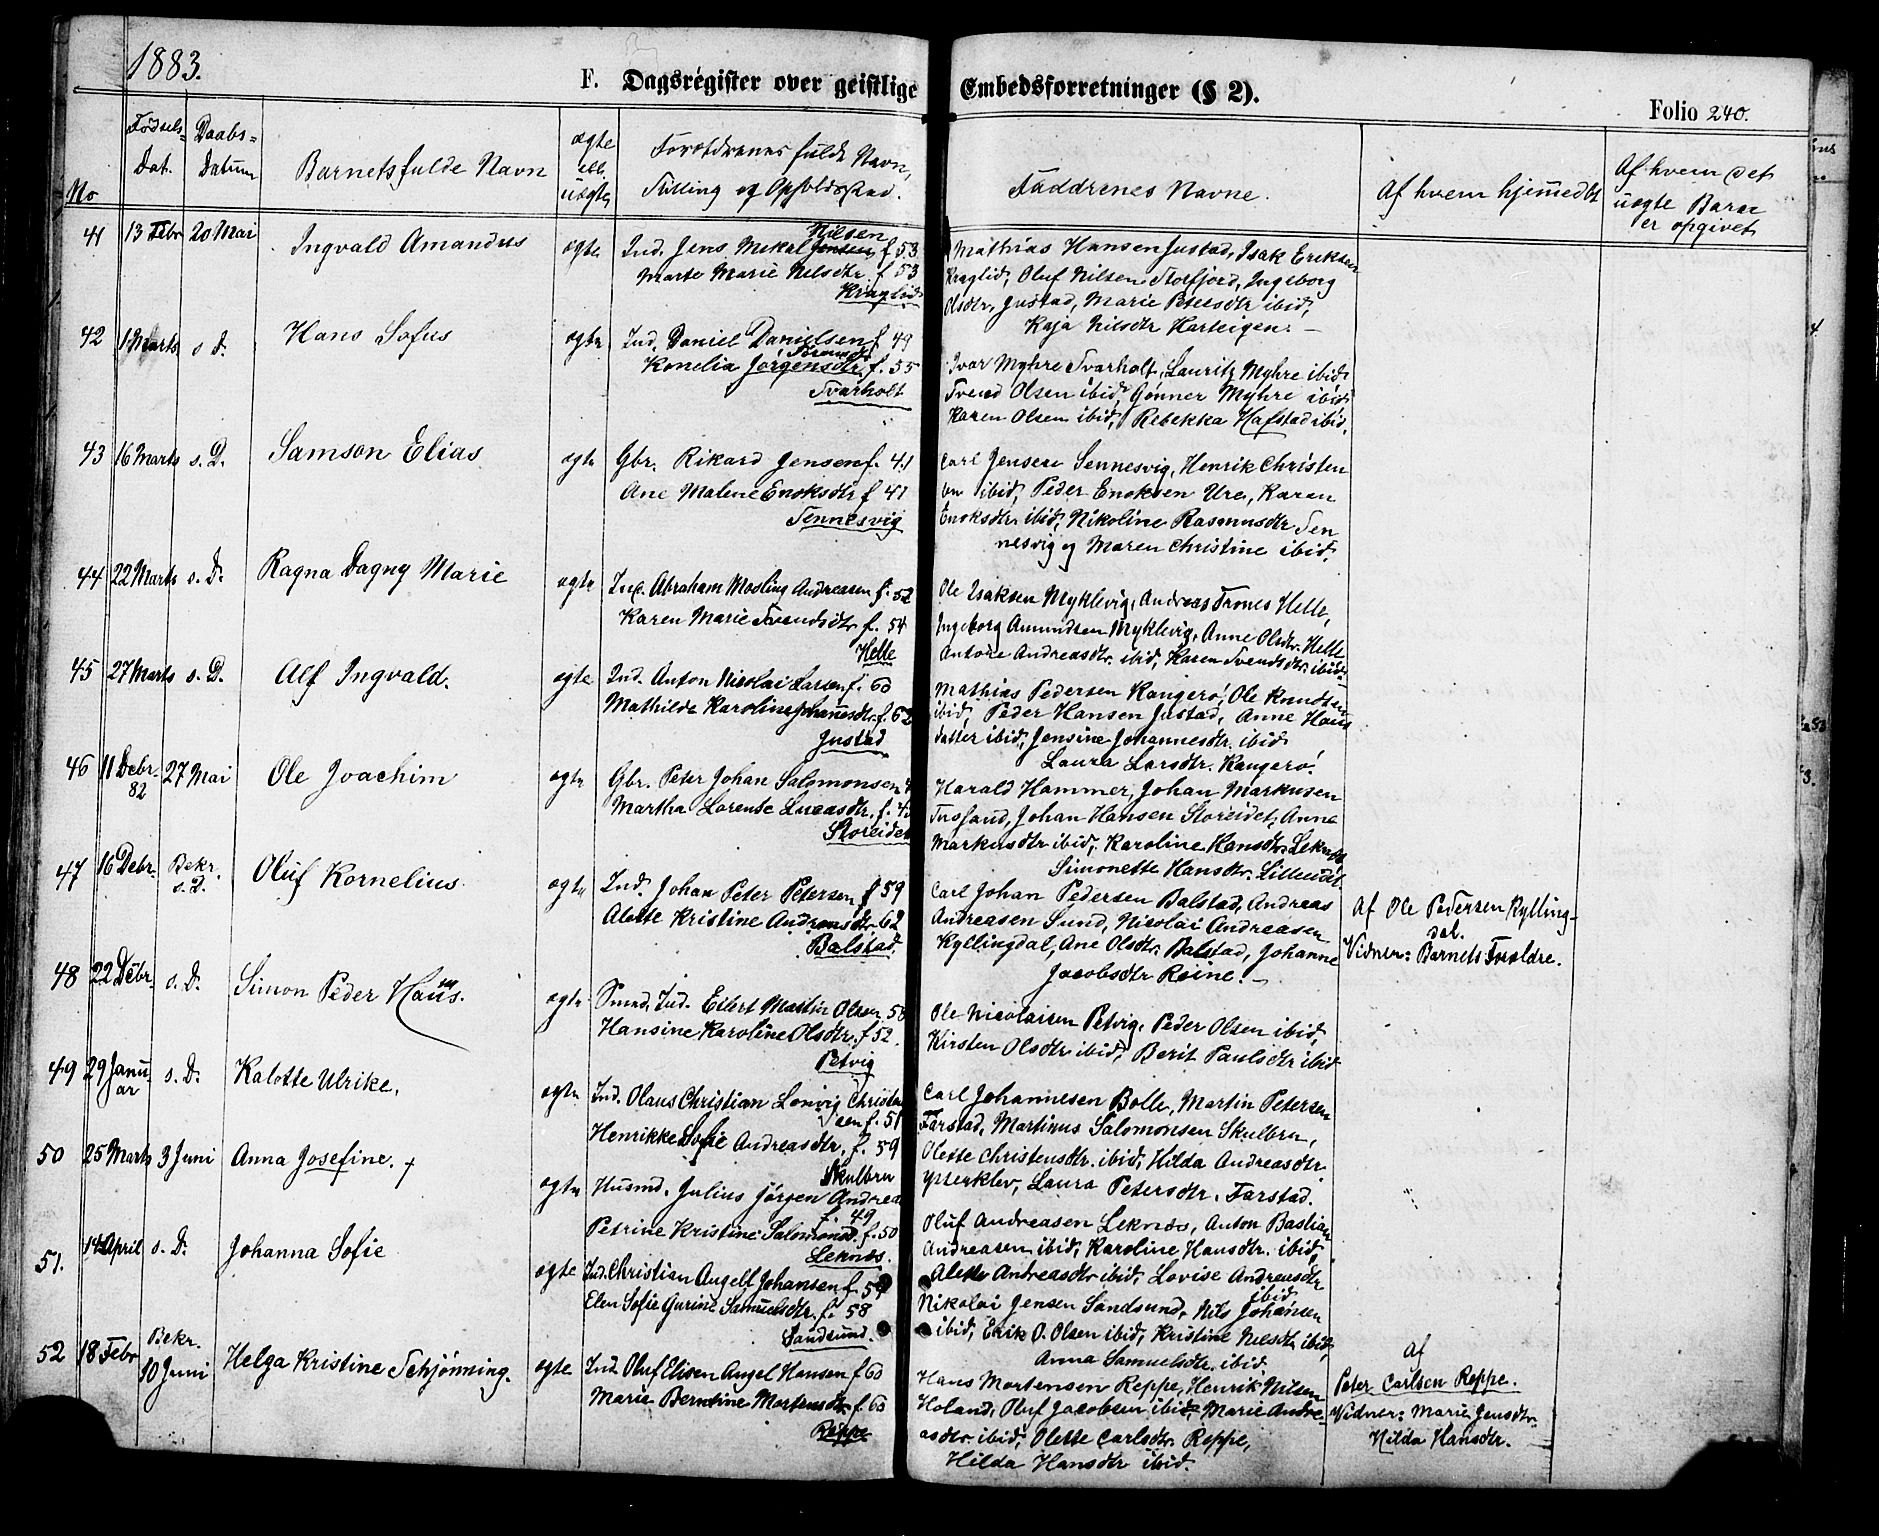 1883.
F. Dagsregister over geistlige Embedsforretninger (§ 2).
Folio 240.
No
Fødsels-
Dat.
Daabs-
Datum
Barnets fulde Navn
ægte
ell.
uægte
Forældrenes fulde Navn,
Stilling og Opholdssted.
Faddrenes Navne.
Af hvem hjemmedbt
Af hvem det
uægte Barn
er opgivet
41 13 Febr 20 Mai Ingvald Amandus ægte
Ind. Jens Mekal Jensen Nilsen f 53
Marte Marie Nilsdtr. f 53
Mathias Hansen Justad, Isak Eriksen
Kraglid, Oluf Nilsen Storfjord, Ingeborg
Olsdtr. Justad, Marie Petersdtr ibid,
Kaja Nilsdtr Harteigen. –
42 1 Marts s D. Hans Sofus ægte
Ind. Daniel Danielsen f 49
Konelia Jørgensdtr. f. 55
Tvarholt
Ivar Myhre Svarholt, Lauritz Myhre ibid
Svend Olsen ibid, Gønner Myhre ibid
Karen Olsen ibid, Rebekka Hafstad ibid.
43 16 Marts s. D. Samson Elias ægte
Gbr. Rikard Jensen f. 41
Ane Malene Enoksdtr f 41
Sennesvig
Carl Jensen Sennesvig, Henrik Christen
sen ibid, Peder Enoksen Ure, Karen
Enoksdtr ibid, Nikoline Rasmusdtr Sen
nesvig og Maren Christine ibid.
44 22 Marts s. D. Ragna Dagny Marie ægte
Ind. Abraham Mosling Andreasen f. 52
Karen Marie Svendsdtr f. 54
Helle
Ole Isaksen Myklevig, Andreas Tranes Helle,
Ingeborg Amundsen Myklevig, Anne Olsdtr. Helle
Antore Andreasdtr. ibid, Karen Svendsdtr. ibid.
45 27 Marts s. D. Alf Ingvald. ægte
Ind. Anton Nicolai Larsen f. 60
Mathilde Karoline Johannesdtr. f. 62
Justad
Mathias Pedersen Kangerø, Ole Knudsen
ibid, Peder Hansen Justad, Anne Hans
datter ibid, Jensine Johannesdtr. ibid
Laura Larsdtr. Kangerø.
46 11 Debr. 82 27 Mai Ole Joachim ægte
Gbr. Peter Johan Salomonsen
Martha Lorentse Lucasdtr. f. 43
Storeidet
Harald Hammer, Johan Markusen
Johan Hansen Storeidet, Anne
Markusdtr ibid, Karoline Hansdtr. Leknes
Simonette Hansdtr. Lilleeidet.
47 16 Debr. Bekr. s. D. Oluf Kornelius. ægte
Ind. Johan Peter Petersen f 59
Alette Kristine Andreasdtr. 62
Balstad.
Carl Johan Pedersen Balstad, Andreas
Andreasen Sund, Nicolai Andreasen
Kyllingdal, Ane Olsdtr. Balstad, Johanne
Jacobsdtr Reine. –
Af Ole Pedersen Kylling-
dal.
Vidner: Barnets Forældre.
48 22 Debr. s. D. Simon Peder Hansen. ægte
Smed, Ind. Eilert Martin Olsen 58
Hansine Karoline Olsdtr. f 52.
Petvig
Ole Nicolaisen Petvig, Peder Olsen ibid,
Kirsten Olsdtr ibid, Berit Paulsdtr ibid
49 29 Januar s. D. Kalotte Ulrike. ægte
Ind. Olaus Christian Lovvig Christen
sen f. 51
Henrikke Sofie Andreasdtr. f. 59
Skulbru
Carl Johannesen Bolle, Martin Petersen
Farstad, Martinus Salomonsen Skulbru,
Olette Christensdtr. ibid, Hilda Andreasdtr.
Ytterklev, Laura Petersdtr. Farstad.
50 25 Marts 3 Juni Anna Josefine. † ægte
Husmd. Julius Jørgen Andrea
f. 49
Petrine Kristine Salomonsd. f. 50
Leknes.
Oluf Andreasen Leknes, Anton Bastian
Andreasen ibid, Karoline Hansdtr. ibid,
Alette Andreasdtr ibid, Lovise Andreasdtr
ibid
51. 14 April s. D. Johanna Sofie ægte
Ind. Christian Angell Johansen f 59
Elen Sofie Gurine Samuelsdtr. f. 58
Sandsund.
Nikolai Jensen Sandsund, Nils Johansen
ibid, Erik O. Olsen ibid, Kristine Nilsdtr ibid,
Anna Samuelsdtr. ibid.
52 18 Febr Bekr. 10 Juni Helga Kristine Schjønning. ægte
Ind Oluf Elisen Angel Hansen f 60
Marie Berntine Mortensdtr f. 60
Reppe
Hans Mortensen Reppe, Henrik Nilsen
Holand, Oluf Jacobsen ibid, Marie Andre-
asdtr ibid, Olette Carlsdtr. Reppe,
Hilda Hansdtr ibid.
Af
Peter Carlsen Reppe.
Vidner: Marie Jensdtr.
Hilda Hansdtr.